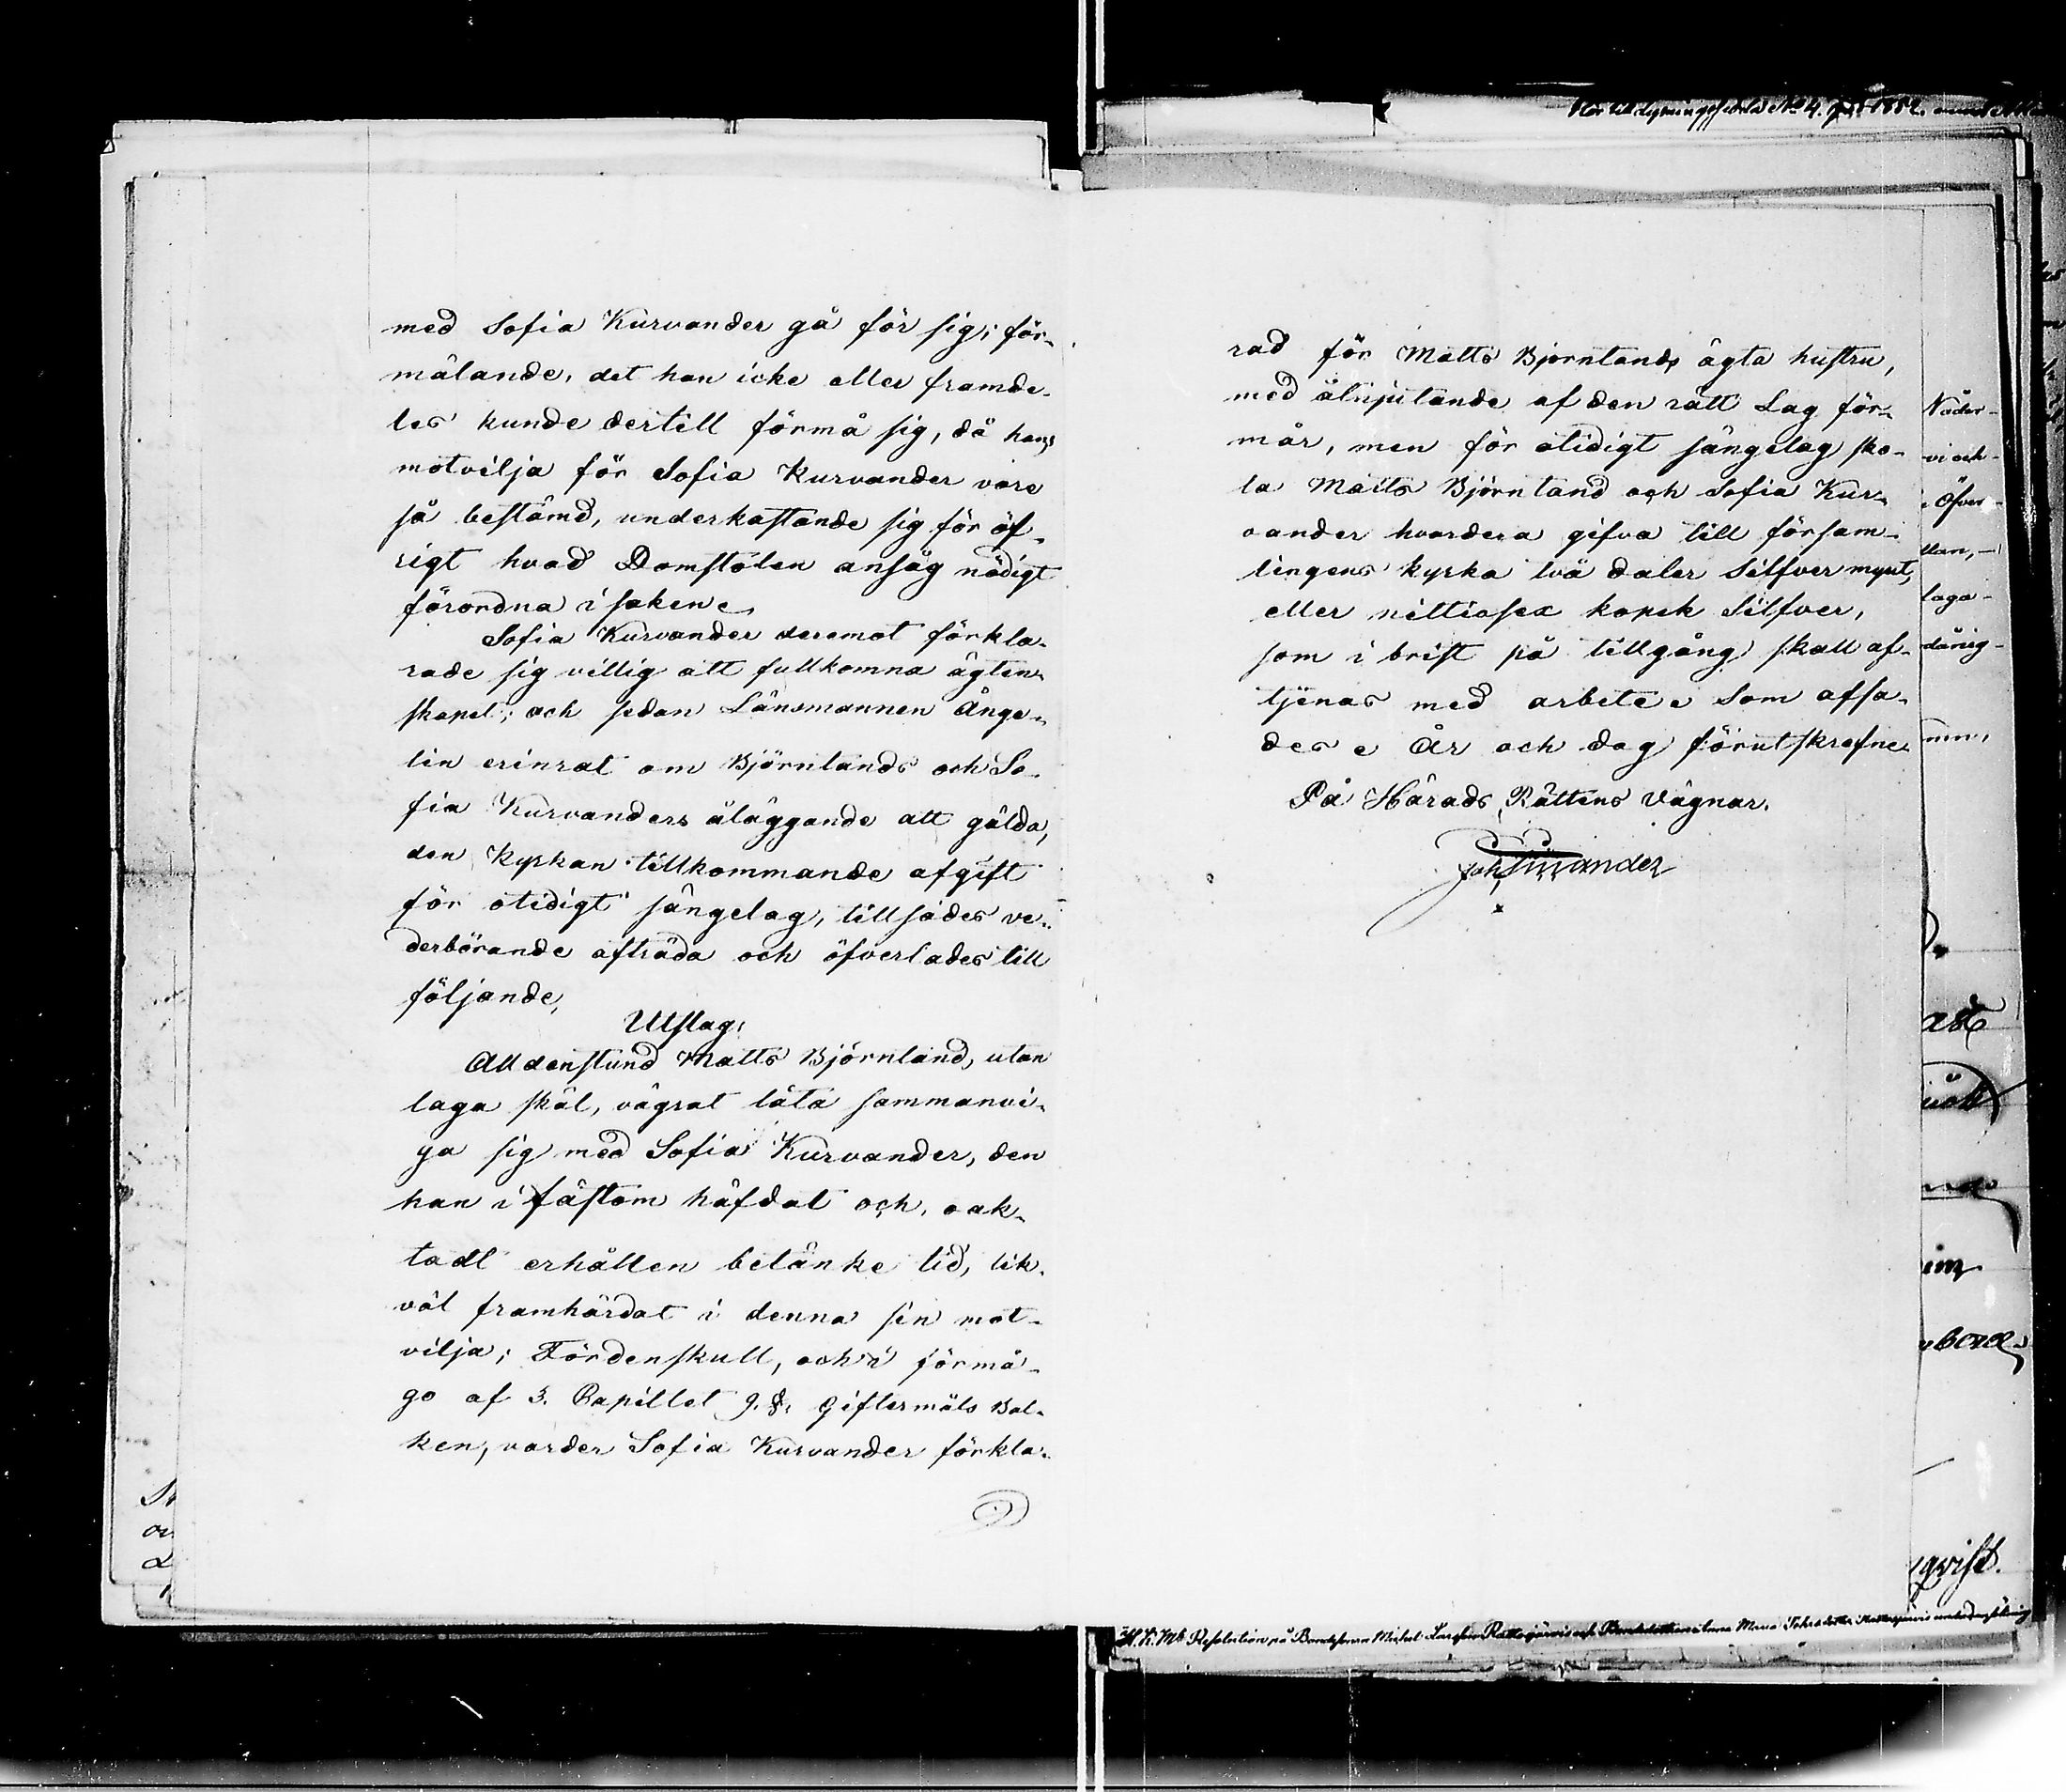 med Sofia Kurvander gå för sig; för-
mälande, det han icke eller framde-
les kunde dertill förmå sig, då hans
motvilja för Sofia Kurvander vore
så bestämd, underkastande sig för öf-
rigt hvad Domstolen ansåg nödigt
förordna i saken.
Sofia Kurvander deremot förkla-
rade sig villig att fullkomna ägten-
skapet; och sedan Länsmannen Ånge-
lin erinrat om Björnlands och So-
fia Kurvanders åläggande att gälda,
den kyrkan tillkommande afgift
för otidigt sängelag, tillsades ve-
derbörande afträda och öfverlades till
följande,
Utslag:
Alldenstund Matts Björnland, utan
laga skäl, vägrat låta sammanvi-
ga sig med Sofia Kurvander, den
han i fästom häfdat och, oak-
tadt erhållen betänke tid, lik-
väl framhärdat i denna sin mot-
vilja; Fördenskull, och i förmå-
go af 3. Capitlet 9. §. Giftermåls Bal-
ken, varder Sofia Kurvander förkla-
rad för Matts Bjornlands ägta hustru,
med åtnjutande af den rätt Lag för-
mår, men för otidigt sängelag sko-
la Matts Björnland och Sofia Kur-
vander hvardera gifva till försam-
lingens kyrka två daler Silfver mynt,
eller nittiosex kopek Silfver,
som i brist på tillgång skall af-
tjenas med arbete. Som afsa-
des. År och dag förutskrefne.
På Härads Rättens Vägnar.
Nåder-
vi och
Öfver-
laga-
qvist.